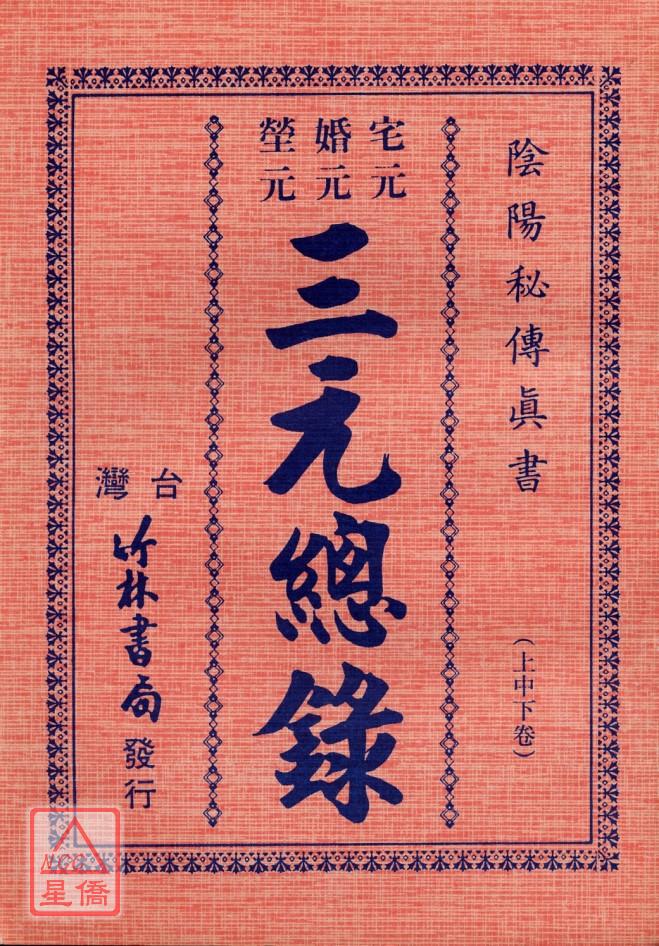 陰陽秘傳眞書
(上中下卷)
宅元
婚元
塋元
三元總錄
台灣
竹林書局發行
NCC
星僑